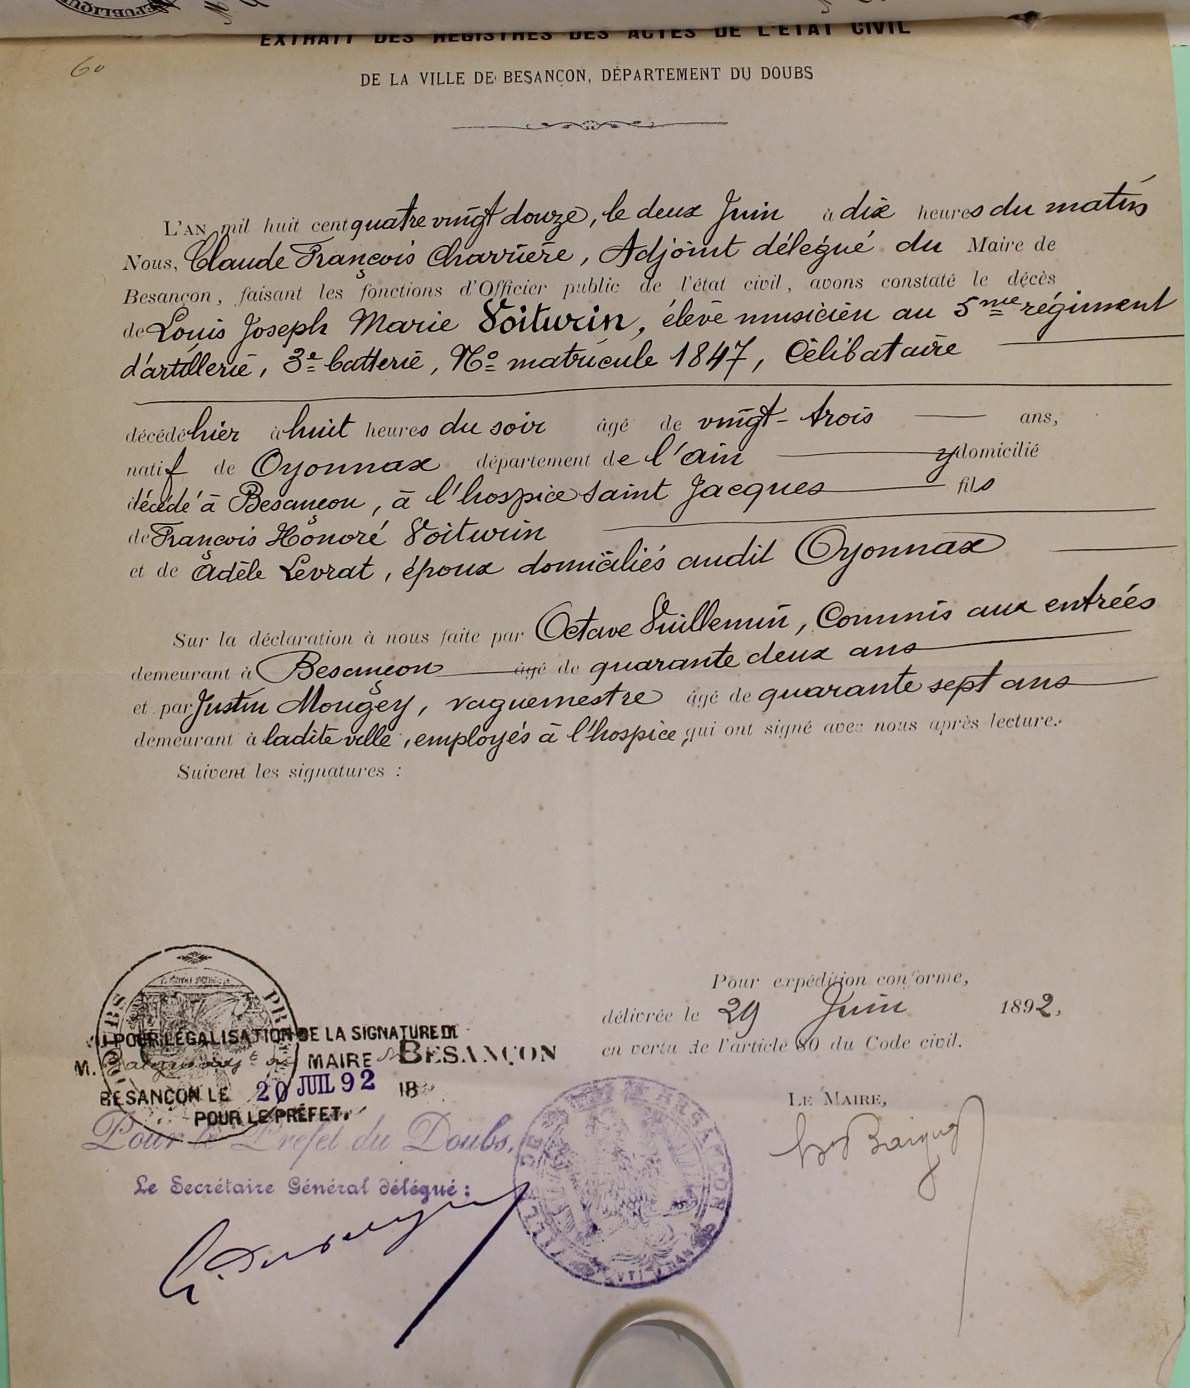 EXTRAIT DES REGISTRES DES ACTES DE L'ÉTAT CIVIL
60
DE LA VILLE DE BESANÇON, DÉPARTEMENT DU DOUBS
L'AN mil huit cent quatre vingt douze, le deux Juin à dix heures du matin
Nous, Claude François Charrière, Adjoint délégué du Maire de
Besançon, faisant les fonctions d'Officier public de l'état civil, avons constaté le décès
de Louis Joseph Marie Voiturin, élève musicien au 5me régiment
d'artillerie, 3e batterie, No matricule 1847, Célibataire
décédé hier à huit heures du soir âgé de vingt-trois ans,
natif de Oyonnax département de l'ain y domicilié
décédé à Besançon, à l'hospice saint Jacques fils
de François Honoré Voiturin
et de Adèle Levrat, époux domiciliés audit Oyonnax
Sur la déclaration à nous faite par Octave Vuillemin, Commis aux entrées
demeurant à Besançon âgé de quarante deux ans
et par Justin Mougey, vaguemestre âgé de quarante sept ans
demeurant à ladite ville, employés à l'hospice, qui ont signé avec nous après lecture.
Suivent les signatures :
Pour expédition conforme,
délivrée le 29 Juin 1892,
en vertu de l'article 80 du Code civil.
LE MAIRE,
VU POUR LÉGALISATION DE LA SIGNATURE DE
M. MAIRE BESANÇON
BESANÇON LE 20 JUIL 92 18
POUR LE PRÉFET.
Pour le Préfet du Doubs,
Le Secrétaire Général délégué :